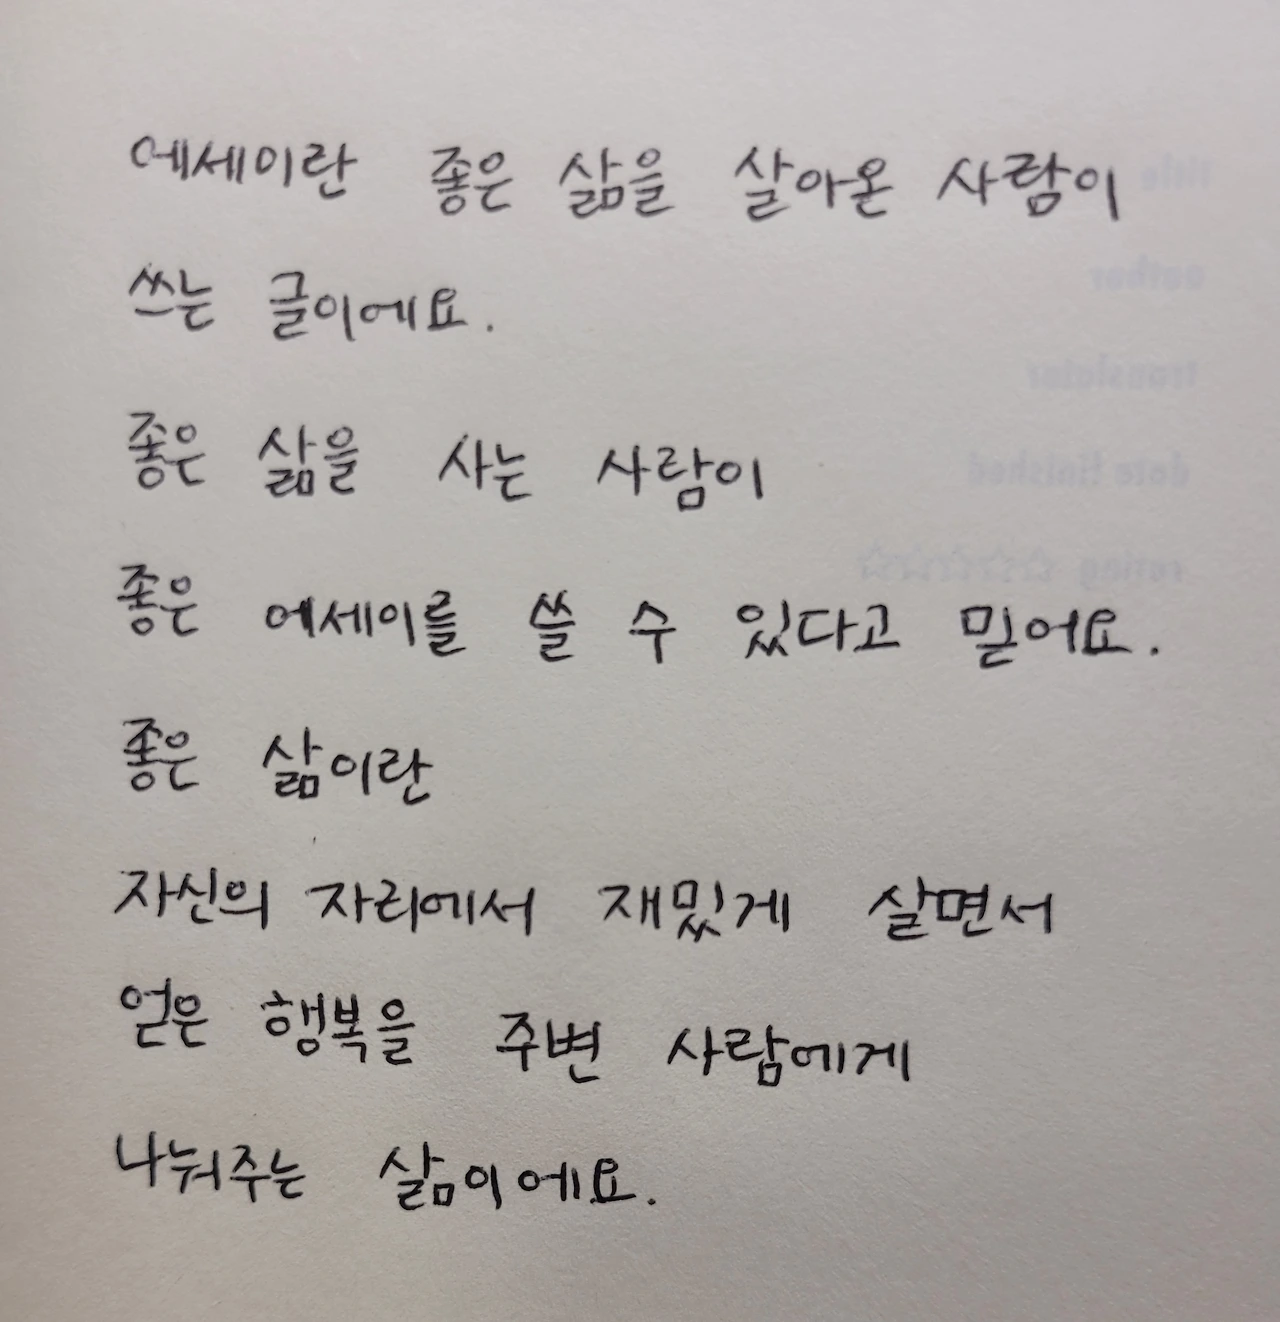 에세이란 좋은 삶을 살아온 사람이
쓰는 글이에요.
좋은 삶을 사는 사람이
좋은 에세이를 쓸 수 있다고 믿어요.
좋은 삶이란
자신의 자리에서 재밌게 살면서
얻은 행복을 주변 사람에게
나눠주는 삶이에요.
title
author
translator
date finished
rating ☆☆☆☆☆